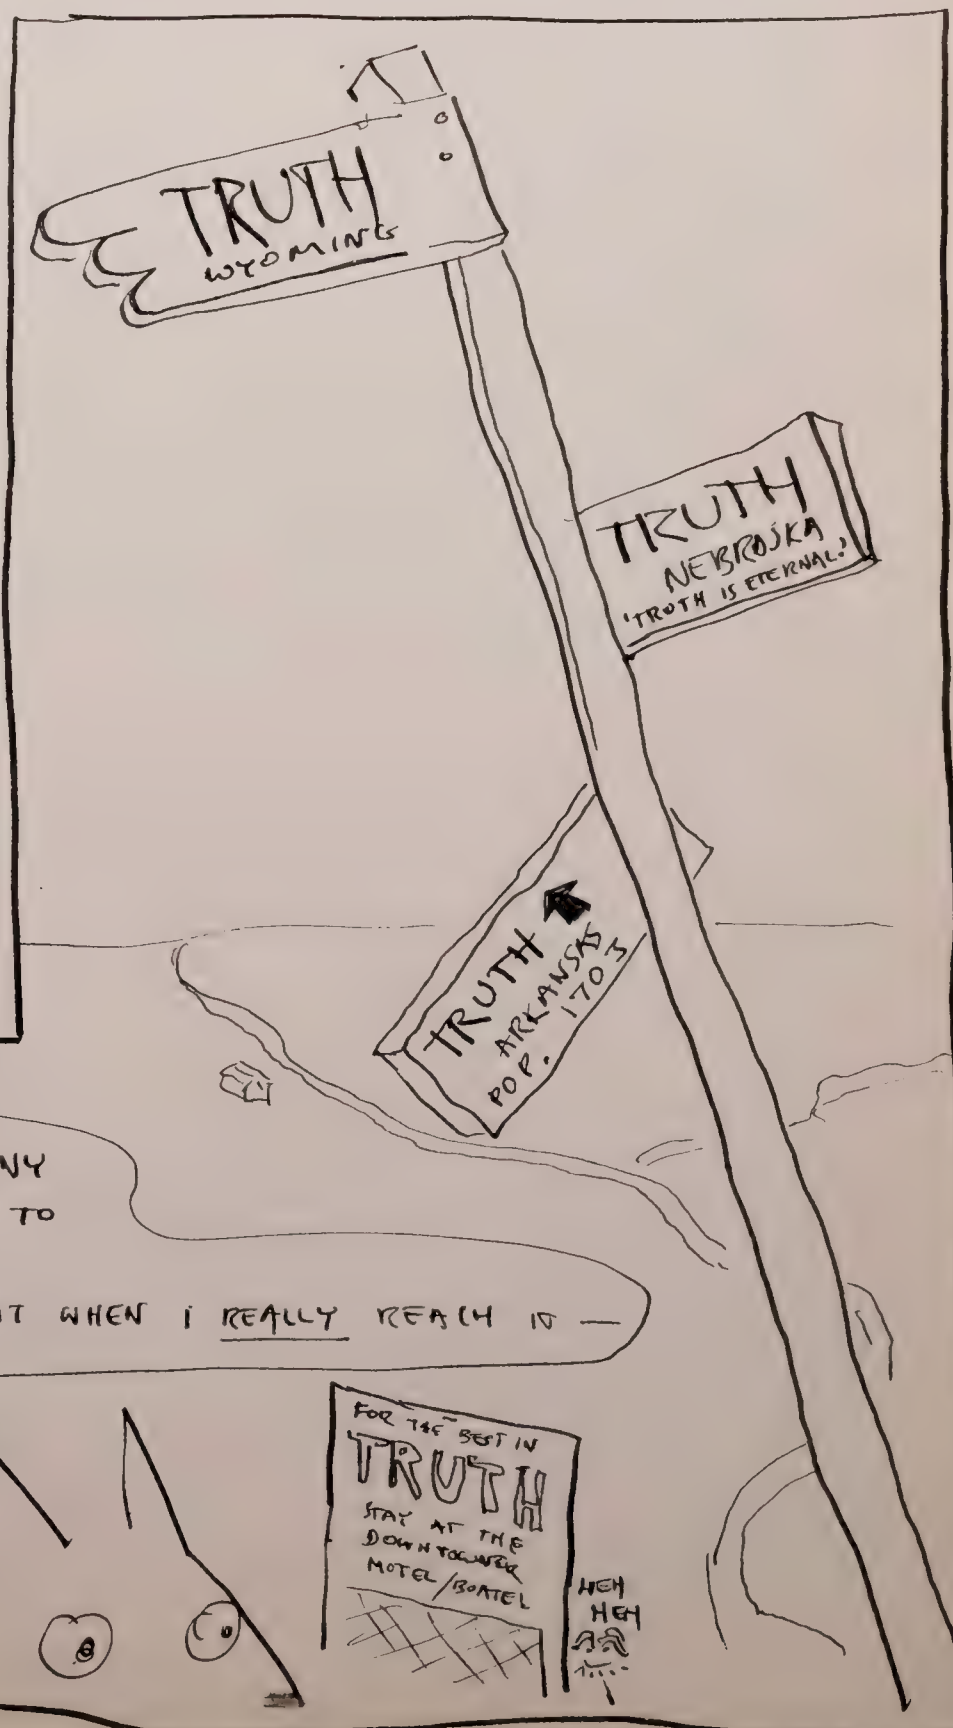 TRUTH
WYOMING
TRUTH
NEBRASKA
'TRUTH IS ETERNAL.'
TRUTH
ARKANSAS
POP. 1703
NY
TO
IT WHEN I REALLY REACH IT —
FOR THE BEST IN
TRUTH
STAY AT THE
DOWNTOWNER
MOTEL/BOATEL
HEH
HEH